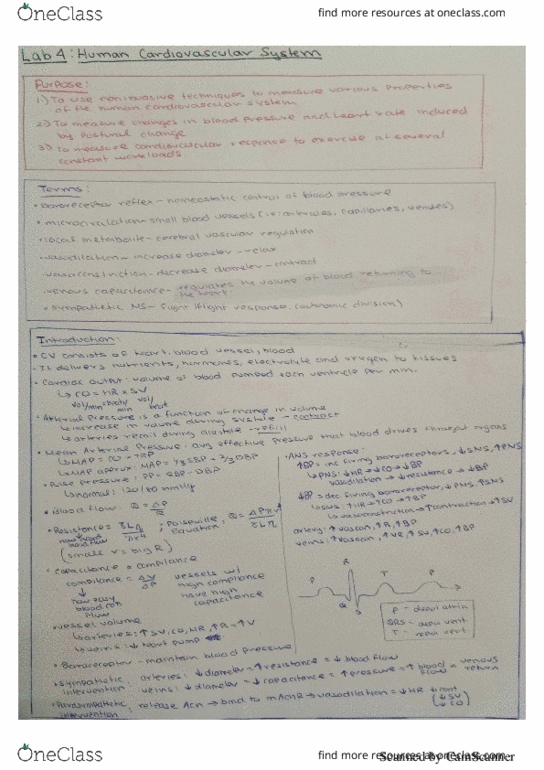 OneClass
find more resources at oneclass.com
Lab 4: Human Cardiovascular System
Purpose:
1) To use noninvasive techniques to measure various properties
of the human cardiovascular system
2) To measure changes in blood pressure and heart rate induced
by postural change
3) To measure cardiovascular response to exercise at several
constant workloads
Terms:
• baroreceptor reflex - homeostatic control of blood pressure
• microcirculation - small blood vessels (i.e. arterioles, capillaries, venules)
• local metabolite - cerebral vascular regulation
• vasodilation - increase diameter - relax
• vasoconstriction - decrease diameter - contract
• venous capacitance - regulates the volume of blood returning to
the heart
• sympathetic NS - fight/flight response (autonomic division)
Introduction:
• CV consists of heart, blood vessel, blood
• It delivers nutrients, hormones, electrolyte and oxygen to tissues
• Cardiac output: volume of blood pumped each ventricle per min.
↳ CO = HR × SV
vol/min beats/min vol/beat
• Arterial Pressure is a function of change in volume
↳ increase in volume during systole - contract
↳ arteries recoil during diastole - refill
• Mean Arterial Pressure: avg effective pressure that blood drives through organs
↳ MAP = CO × TPR
↳ MAP approx: MAP = 1/3 SBP + 2/3 DBP
• Pulse pressure: PP = SBP - DBP
↳ normal: 120/80 mmHg
• Blood flow: Q = ΔP/R
• Resistance = 8Lη/πr⁴ ; Poiseuille Equation, Q = ΔPπr⁴/8Lη
(small r = big R)
• Capacitance & compliance
compliance = ΔV/ΔP
vessels w/
high compliance
have high
capacitance
how easy
blood can
flow
• vessel volume
↳ arteries: ↑SV, CO, HR, ↑R = ↑V
↳ veins: ↓ heart pump
• ANS response:
↑BP = inc firing baroreceptors, ↓SNS, ↑PNS
↳ PNS: ↓HR → ↓CO → ↓BP
vasodilation → ↓resistance → ↓BP
↓BP = dec firing baroreceptor, ↓PNS, ↑SNS
↳ SNS: ↑HR → ↑CO → ↑BP
↳ vasoconstriction → ↑contraction → ↑SV
artery: ↑vascon, ↑R, ↑BP
veins: ↑vascon, ↑VR, ↑SV, ↑CO, ↑BP
R
P
T
P
Q
S
P = depol atria
QRS = depol vent
T = repol vent
• Baroreceptor - maintain blood pressure
• Sympathetic intervention: arteries: ↓ diameter = ↑ resistance = ↓ blood flow
veins: ↓ diameter = ↓ capacitance = ↑ pressure = ↑ blood flow = venous return
• Parasympathetic intervention: release Ach → bind to mAchR → vasodilation = ↓ HR (↓SV ↓CO)
OneClass
find more resources at oneclass.com
Scanned by CamScanner